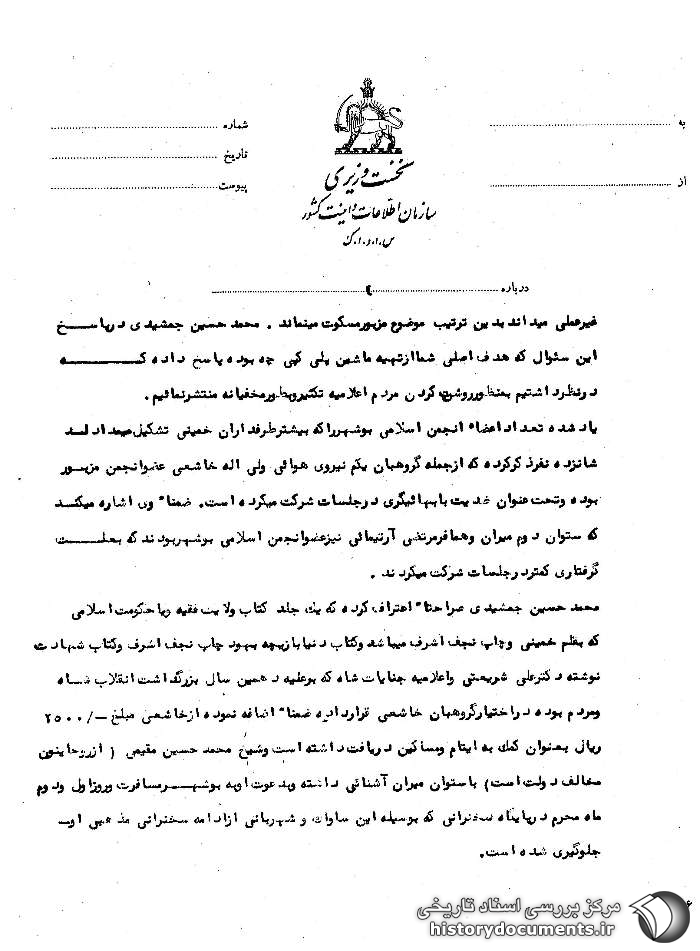 به
شماره
تاریخ
از
پیوست
نخست وزیری
سازمان اطلاعات و امنیت کشور
س.ا.و.ا.ک
درباره
غیرعملی میداند بدین ترتیب موضوع مزبور مسکوت میماند . محمد حسین جمشیدی در پاسخ
این سئوال که هدف اصلی شما از تهیه ماشین پلی کپی چه بوده پاسخ داده که
در نظر داشتیم بمنظور روشن کردن مردم اعلامیه تکثیر و بطور مخفیانه منتشر نمائیم .
یاد شده تعداد اعضاء انجمن اسلامی بوشهر را که بیشتر طرفداران خمینی تشکیل میدادند
شانزده نفر ذکر کرده که از جمله گروهبان یکم نیروی هوائی ولی اله خاشعی عضو انجمن مزبور
بوده و تحت عنوان ضدیت با بهائیگری در جلسات شرکت میکرده است. ضمناً وی اشاره میکند
که ستوان دوم میران و همافر مرتضی آرتیمانی نیز عضو انجمن اسلامی بوشهر بودند که بعلت
گرفتاری کمتر در جلسات شرکت میکردند .
محمد حسین جمشیدی صراحتاً اعتراف کرده که یک جلد کتاب ولایت فقیه و یا حکومت اسلامی
که بقلم خمینی و چاپ نجف اشرف میباشد و کتاب دنیا بازیچه یهود چاپ نجف اشرف و کتاب شهادت
نوشته دکتر علی شریعتی و اعلامیه جنایات شاه که بر علیه دهمین سال بزرگداشت انقلاب شاه
و مردم بوده در اختیار گروهبان خاشعی قرار داده ضمناً اضافه نموده از خاشعی مبلغ -/۲۵۰۰
ریالی بعنوان کمک به ایتام و مساکین دریافت داشته است و شیخ محمد حسین مقیمی ( از روحانیون
مخالف دولت است) با ستوان میران آشنائی داشته و بدعوت او به بوشهر مسافرت و روز اول و دوم
ماه محرم در پایگاه سخنرانی که بوسیله این ساواک و شهربانی از ادامه سخنرانی مذهبی او
جلوگیری شده است.
مرکز بررسی اسناد تاریخی
historydocuments.ir